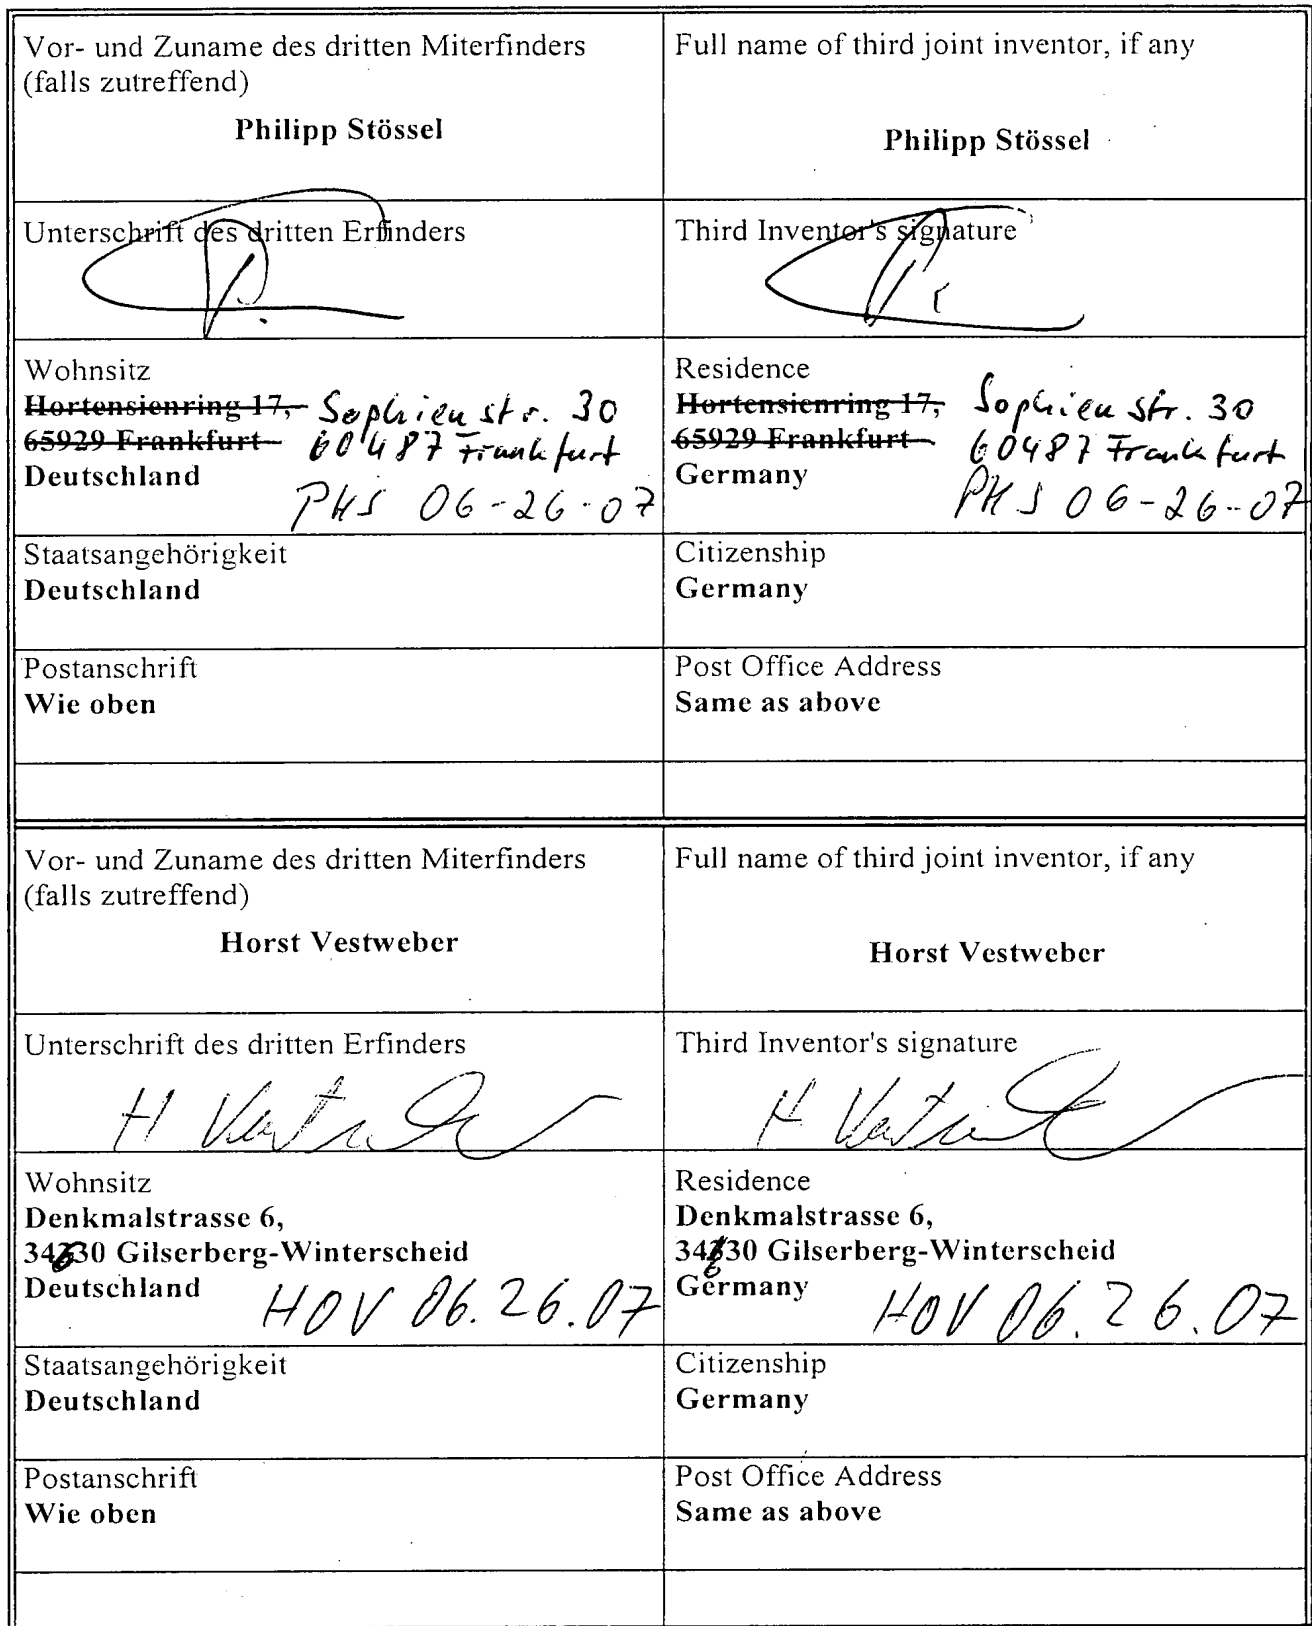 Vor- und Zuname des dritten Miterfinders
(falls zutreffend)
Philipp Stössel
Full name of third joint inventor, if any
Philipp Stössel
Unterschrift des dritten Erfinders
Third Inventor's signature
Wohnsitz
Hortensienring 17, Sophienstr. 30
65929 Frankfurt 60487 Frankfurt
Deutschland
PHS 06-26-07
Residence
Hortensienring 17, Sophienstr. 30
65929 Frankfurt 60487 Frankfurt
Germany
PHS 06-26-07
Staatsangehörigkeit
Deutschland
Citizenship
Germany
Postanschrift
Wie oben
Post Office Address
Same as above
Vor- und Zuname des dritten Miterfinders
(falls zutreffend)
Horst Vestweber
Full name of third joint inventor, if any
Horst Vestweber
Unterschrift des dritten Erfinders
H Vestweber
Third Inventor's signature
H Vestweber
Wohnsitz
Denkmalstrasse 6,
34630 Gilserberg-Winterscheid
Deutschland
HOV 06.26.07
Residence
Denkmalstrasse 6,
34630 Gilserberg-Winterscheid
Germany
HOV 06.26.07
Staatsangehörigkeit
Deutschland
Citizenship
Germany
Postanschrift
Wie oben
Post Office Address
Same as above